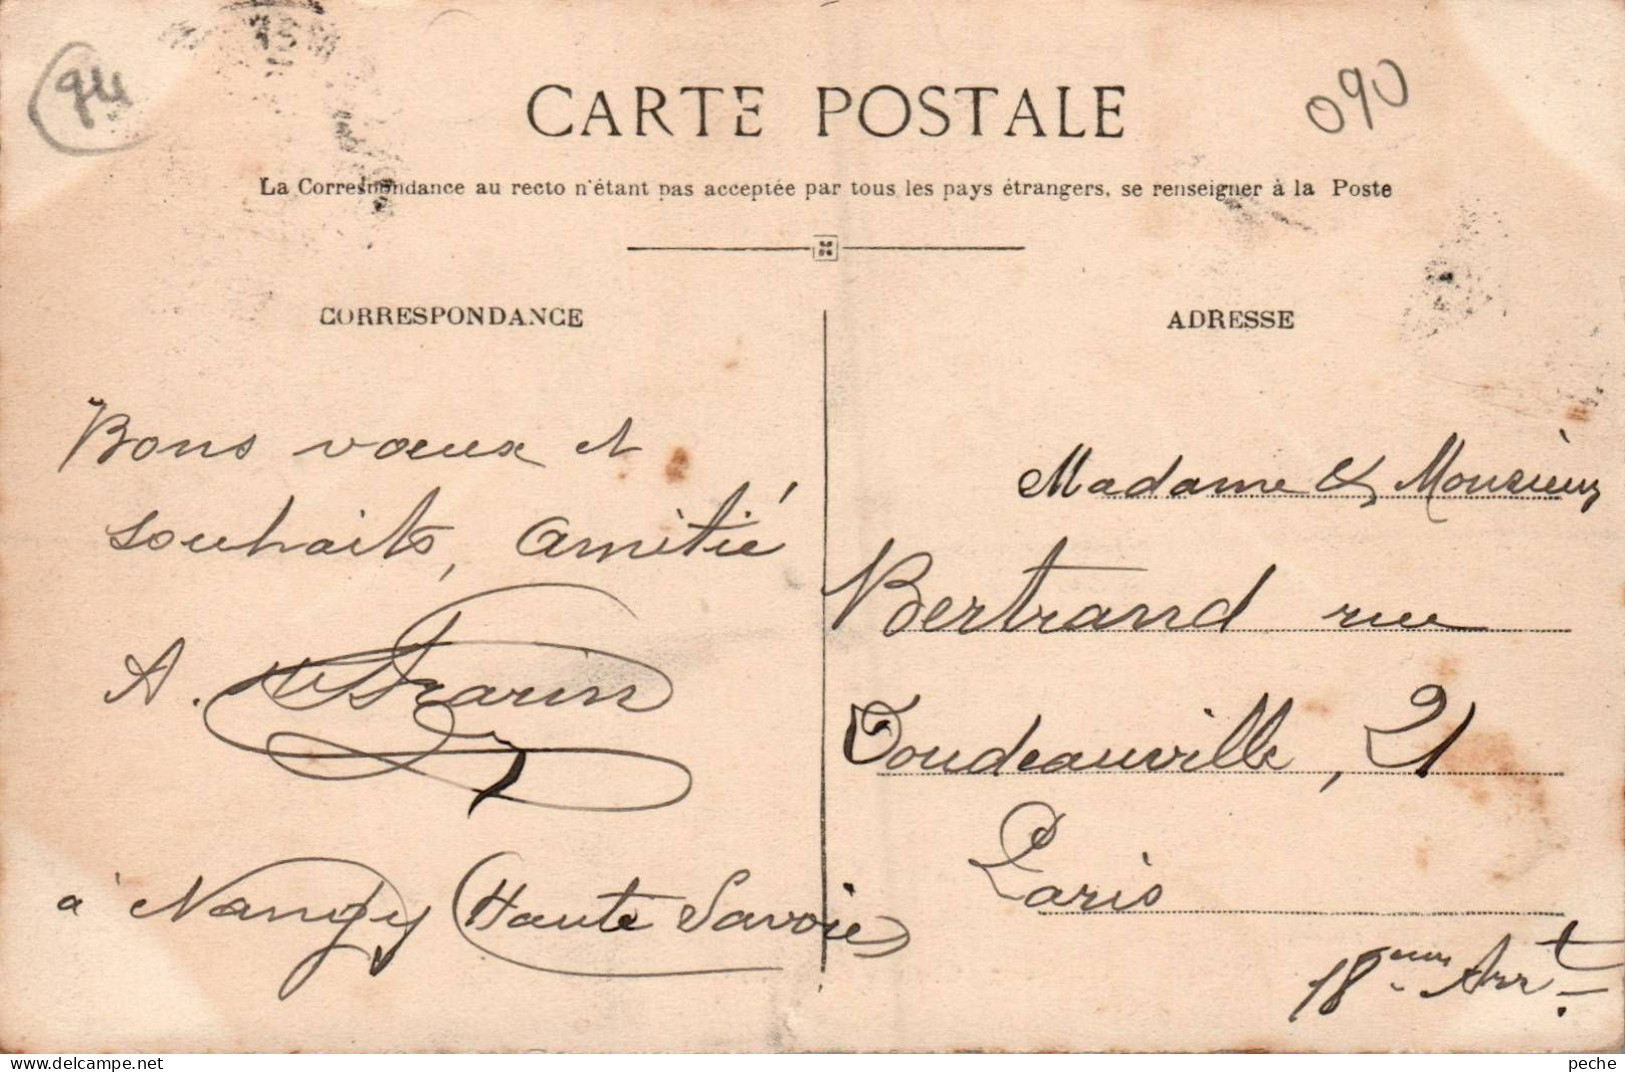 94
15
090
CARTE POSTALE
La Correspondance au recto n'étant pas acceptée par tous les pays étrangers, se renseigner à la Poste
CORRESPONDANCE
Bons vœux et
souhaits, amitié
A.
à Nangy (Haute Savoie)
ADRESSE
Madame & Monsieur
Bertrand rue
Doudeauville, 21
Paris
18ème Arrt.
peche